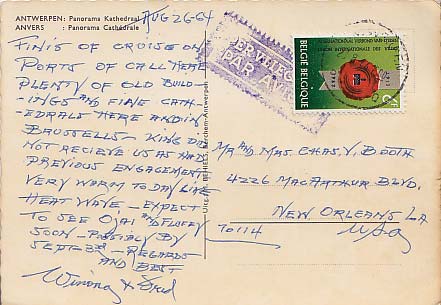 ANTWERPEN: Panorama Kathedraal
ANVERS : Panorama Cathédrale
AUG 26-64
FINIS OF CRUISE ON
PORTS OF CALL HERE
PLENTY OF OLD BUILD
-INGS AND FINE CATH
-EDRALS HERE AND IN
BRUSSELLS - KING DID
NOT RECIEVE US AS HAD
PREVIOUS ENGAGEMENT
VERY WARM TODAY LIKE
HEAT WAVE - EXPECT
TO SEE OJAI AND FLUFFY
SOON - POSSIBLY BY
SEPT-3RD - REGARDS
AND BEST
PAR AVION
BELGIE BELGIQUE
MR AND MRS. CHAS. V. BOOTH
4226 MACARTHUR BLVD.
NEW ORLEANS LA
70114
USA